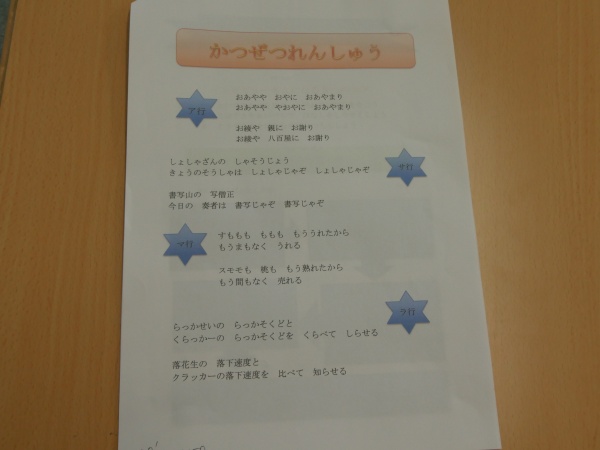 かつぜつれんしゅう
ア行
おあやや　おやに　おあやまり
おあやや　やおやに　おあやまり
お綾や　親に　お謝り
お綾や　八百屋に　お謝り
サ行
しょしゃざんの　しゃそうじょう
きょうのそうしゃは　しょしゃじゃぞ　しょしゃじゃぞ
書写山の　写僧正
今日の　奏者は　書写じゃぞ　書写じゃぞ
マ行
すももも　ももも　もううれたから
もうまもなく　うれる
スモモも　桃も　もう熟れたから
もう間もなく　売れる
ラ行
らっかせいの　らっかそくどと
くらっかーの　らっかそくどを　くらべて　しらせる
落花生の　落下速度と
クラッカーの落下速度を　比べて　知らせる